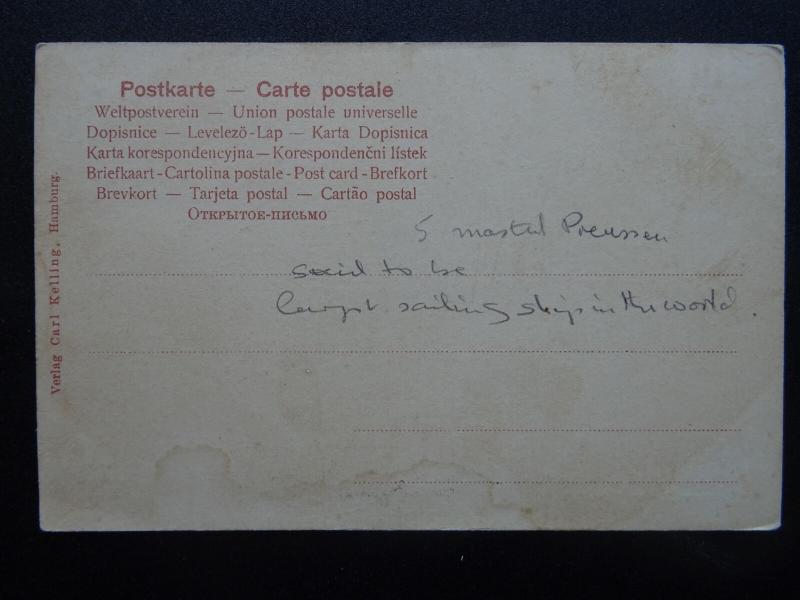 Postkarte — Carte postale
Weltpostverein — Union postale universelle
Dopisnice — Levelezö-Lap — Karta Dopisnica
Karta korespondencyjna — Korespondenčni lístek
Briefkaart - Cartolina postale - Post card - Brefkort
Brevkort — Tarjeta postal — Cartão postal
Открытое-письмо
Verlag Carl Kelling, Hamburg.
5 masted Preussen
said to be
largest sailing ships in the world.